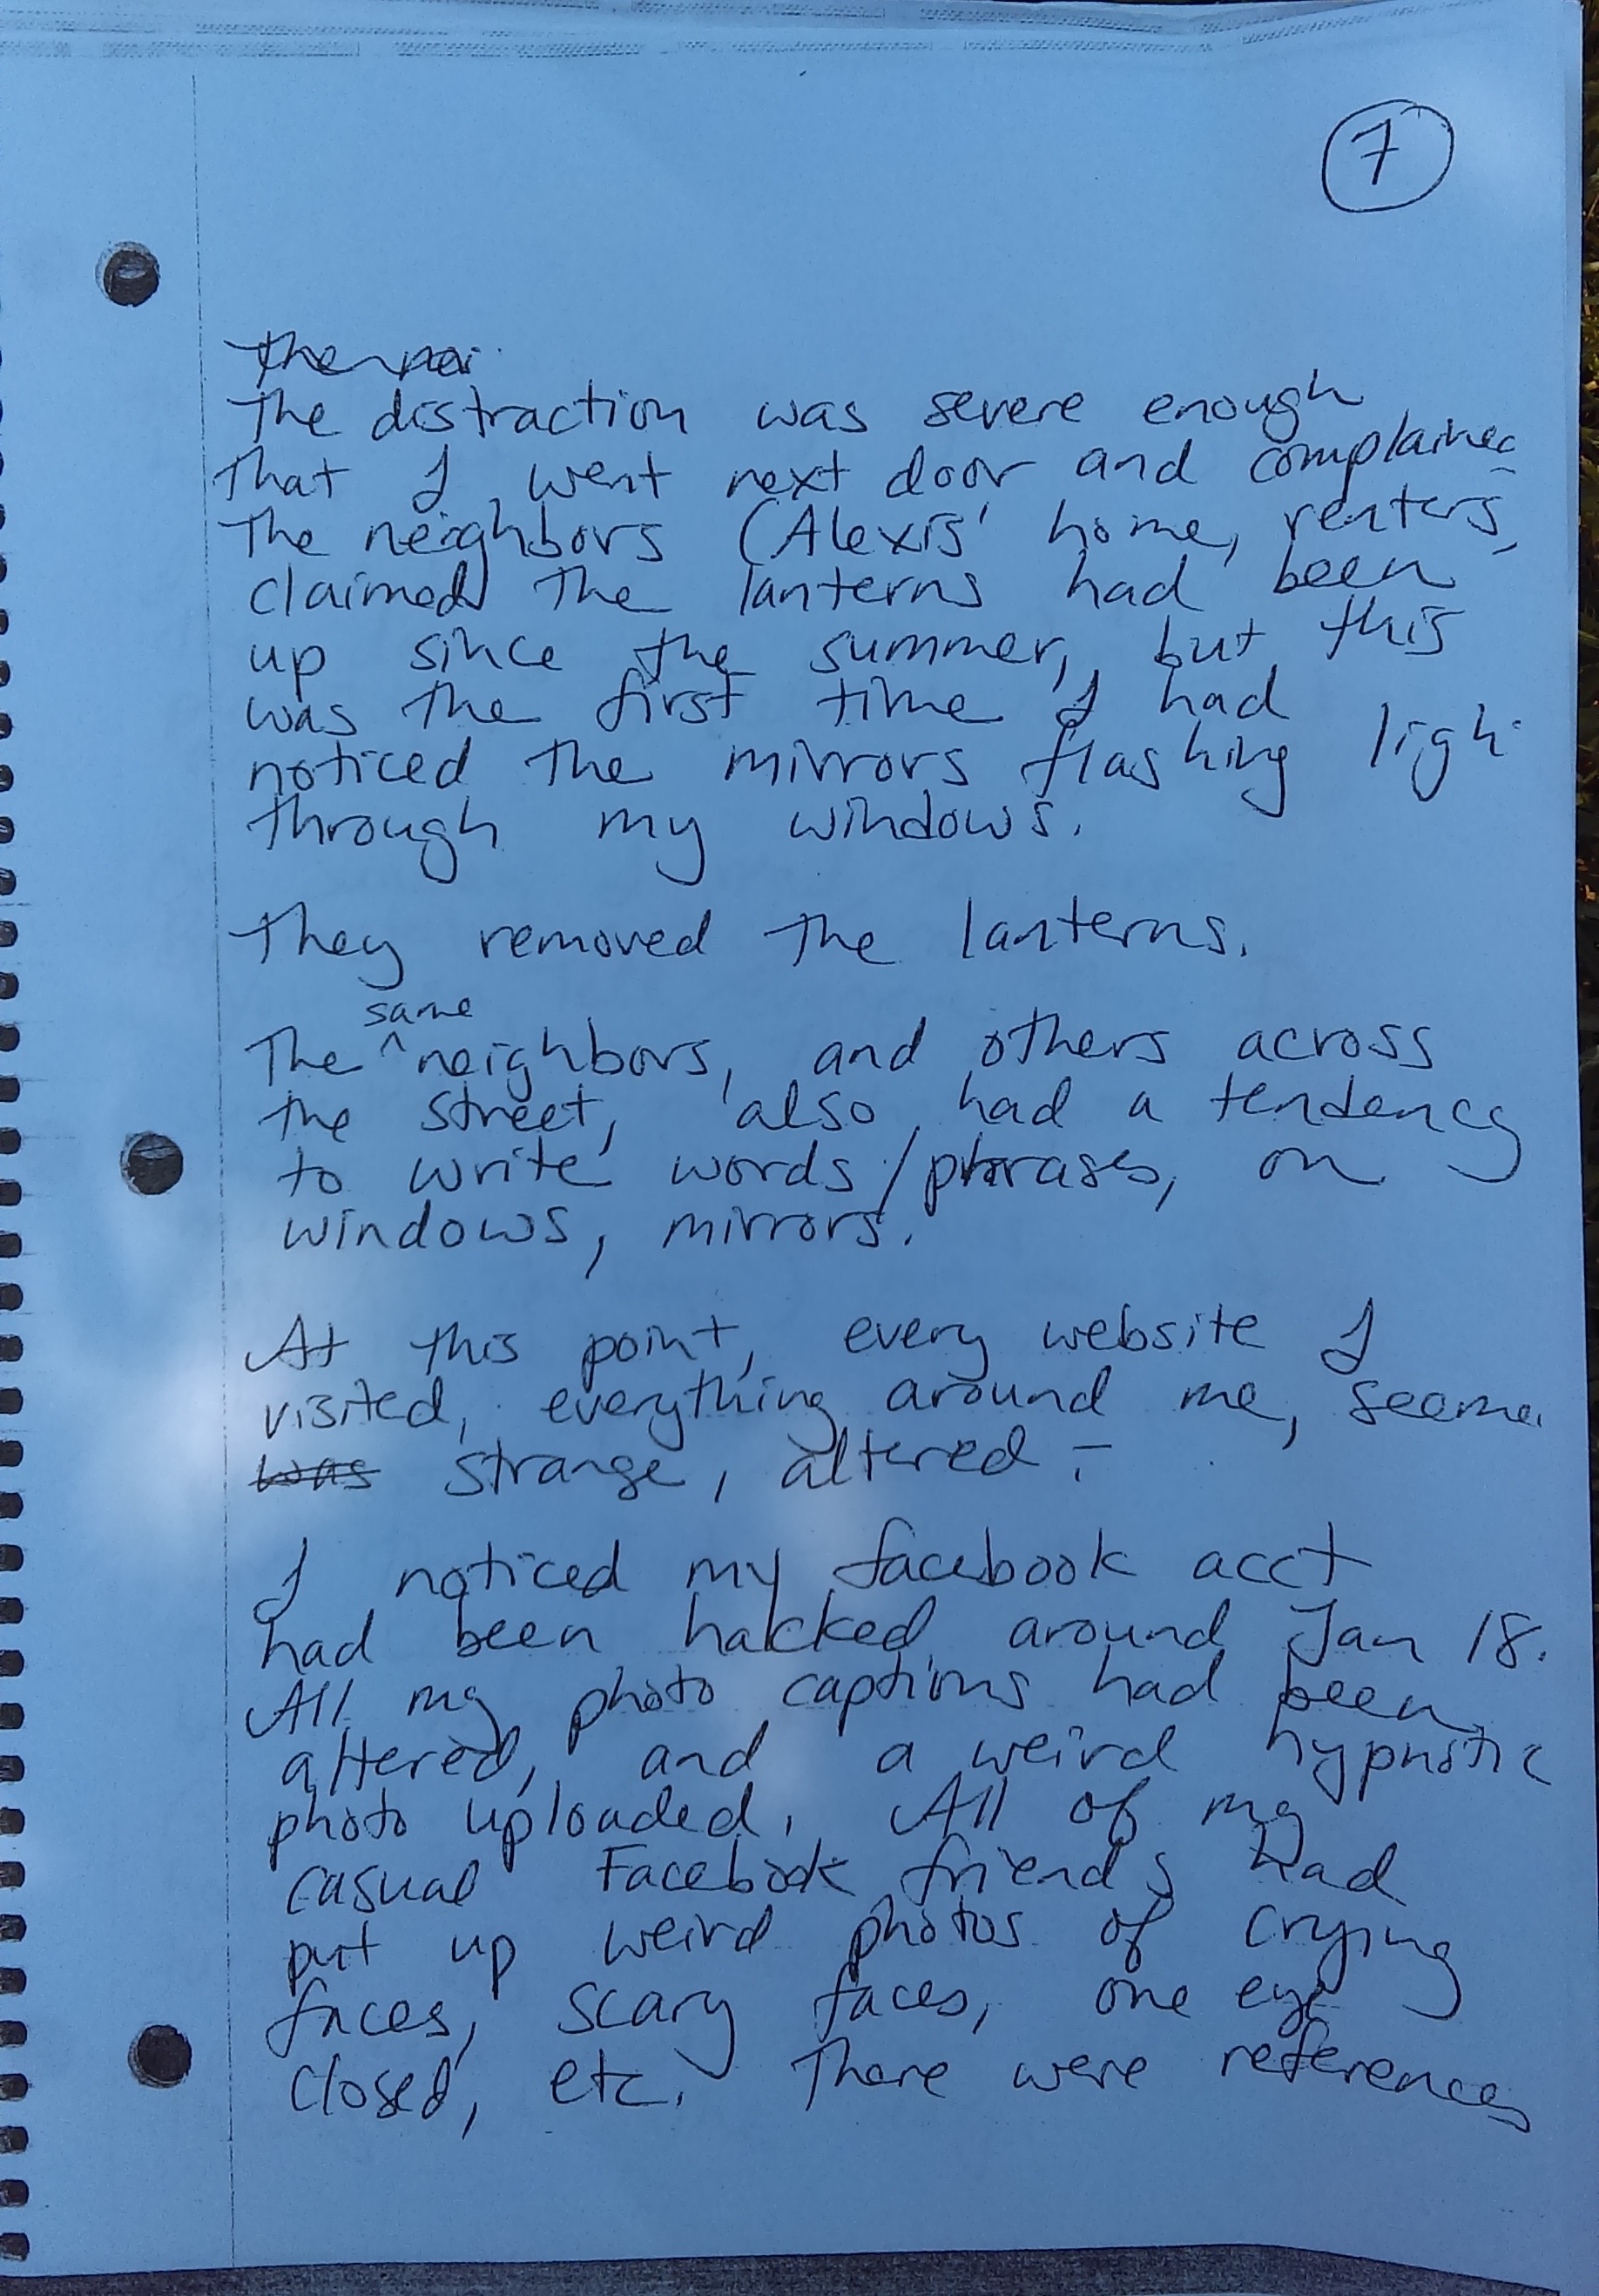 7
The nei
The distraction was severe enough
that I went next door and complained
The neighbors (Alexis' home, renters,
claimed the lanterns had been
up since the summer, but this
was the first time I had
noticed the mirrors flashing ligh
through my windows.
They removed the lanterns.
same
The ^ neighbors, and others across
the street, also had a tendency
to write words/phrases, on
windows, mirrors.
At this point, every website I
visited, everything around me, seeme
was strange, altered -
I noticed my facebook acct
had been hacked around Jan 18.
All my photo captions had been
altered, and a weird hypnotic
photo uploaded. All of my
casual Facebook friends had
put up weird photos of crying
faces, scary faces, one eye
closed, etc. There were references